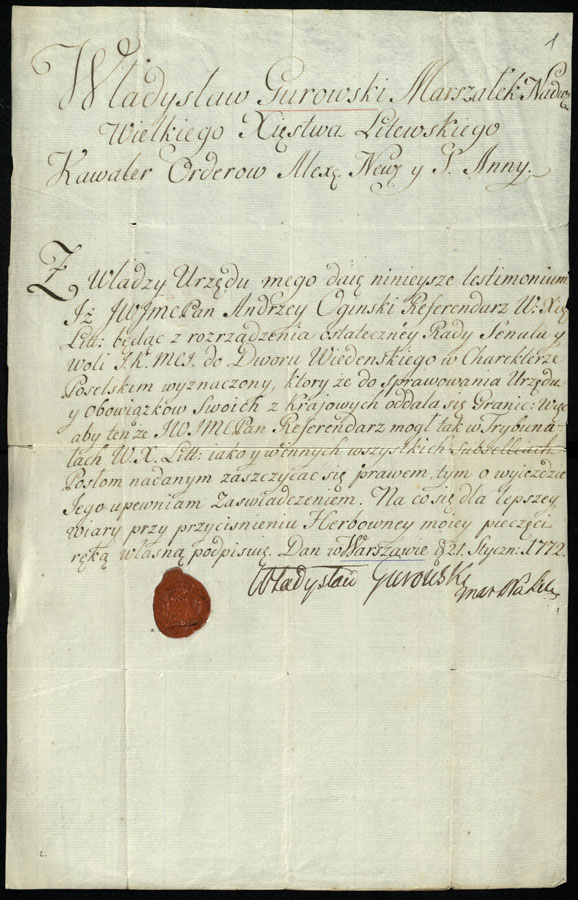 1
Władysław Gurowski Marszałek Nadw:
Wielkiego Xięstwa Litewskiego
Kawaler Orderow Alexę. Newę y S. Anny.
Z Władzy Urzędu mego daię ninieysze testimonium
Iż JWJMCPan Andrzey Oginski Referendarz W: Xię
Litt: będąc z rozrządzenia ostateczney Rady Senatu y
woli J. K. MCI. do Dworu Wiedenskiego w Charekterze
Poselskim wyznaczony, ktory ze do sprawowania Urzędu
y obowiązkow Swoich z Kraiowych oddala się Granic: Więc
aby tenże JWJMCPan Referendarz mogł tak w Trybuna-
łach W. X. Litt: iako y w innych wszystkich Subselliach
Posłom nadanym zaszczycac się prawem, tym o wyieżdzie
Jego upewniam Zaswiadczeniem. Na co się dla lepszey
wiary przy przycisnieniu Herbowney moiey pieczęci
ręką własną podpisuię. Dan w Warszawie d 21. Styczn: 1772.
Władysław Gurowski